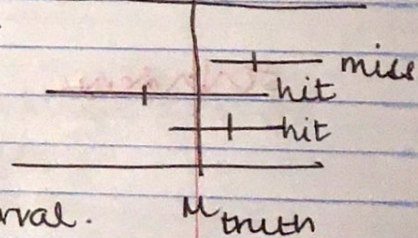 miss
hit
hit
rval. μ truth